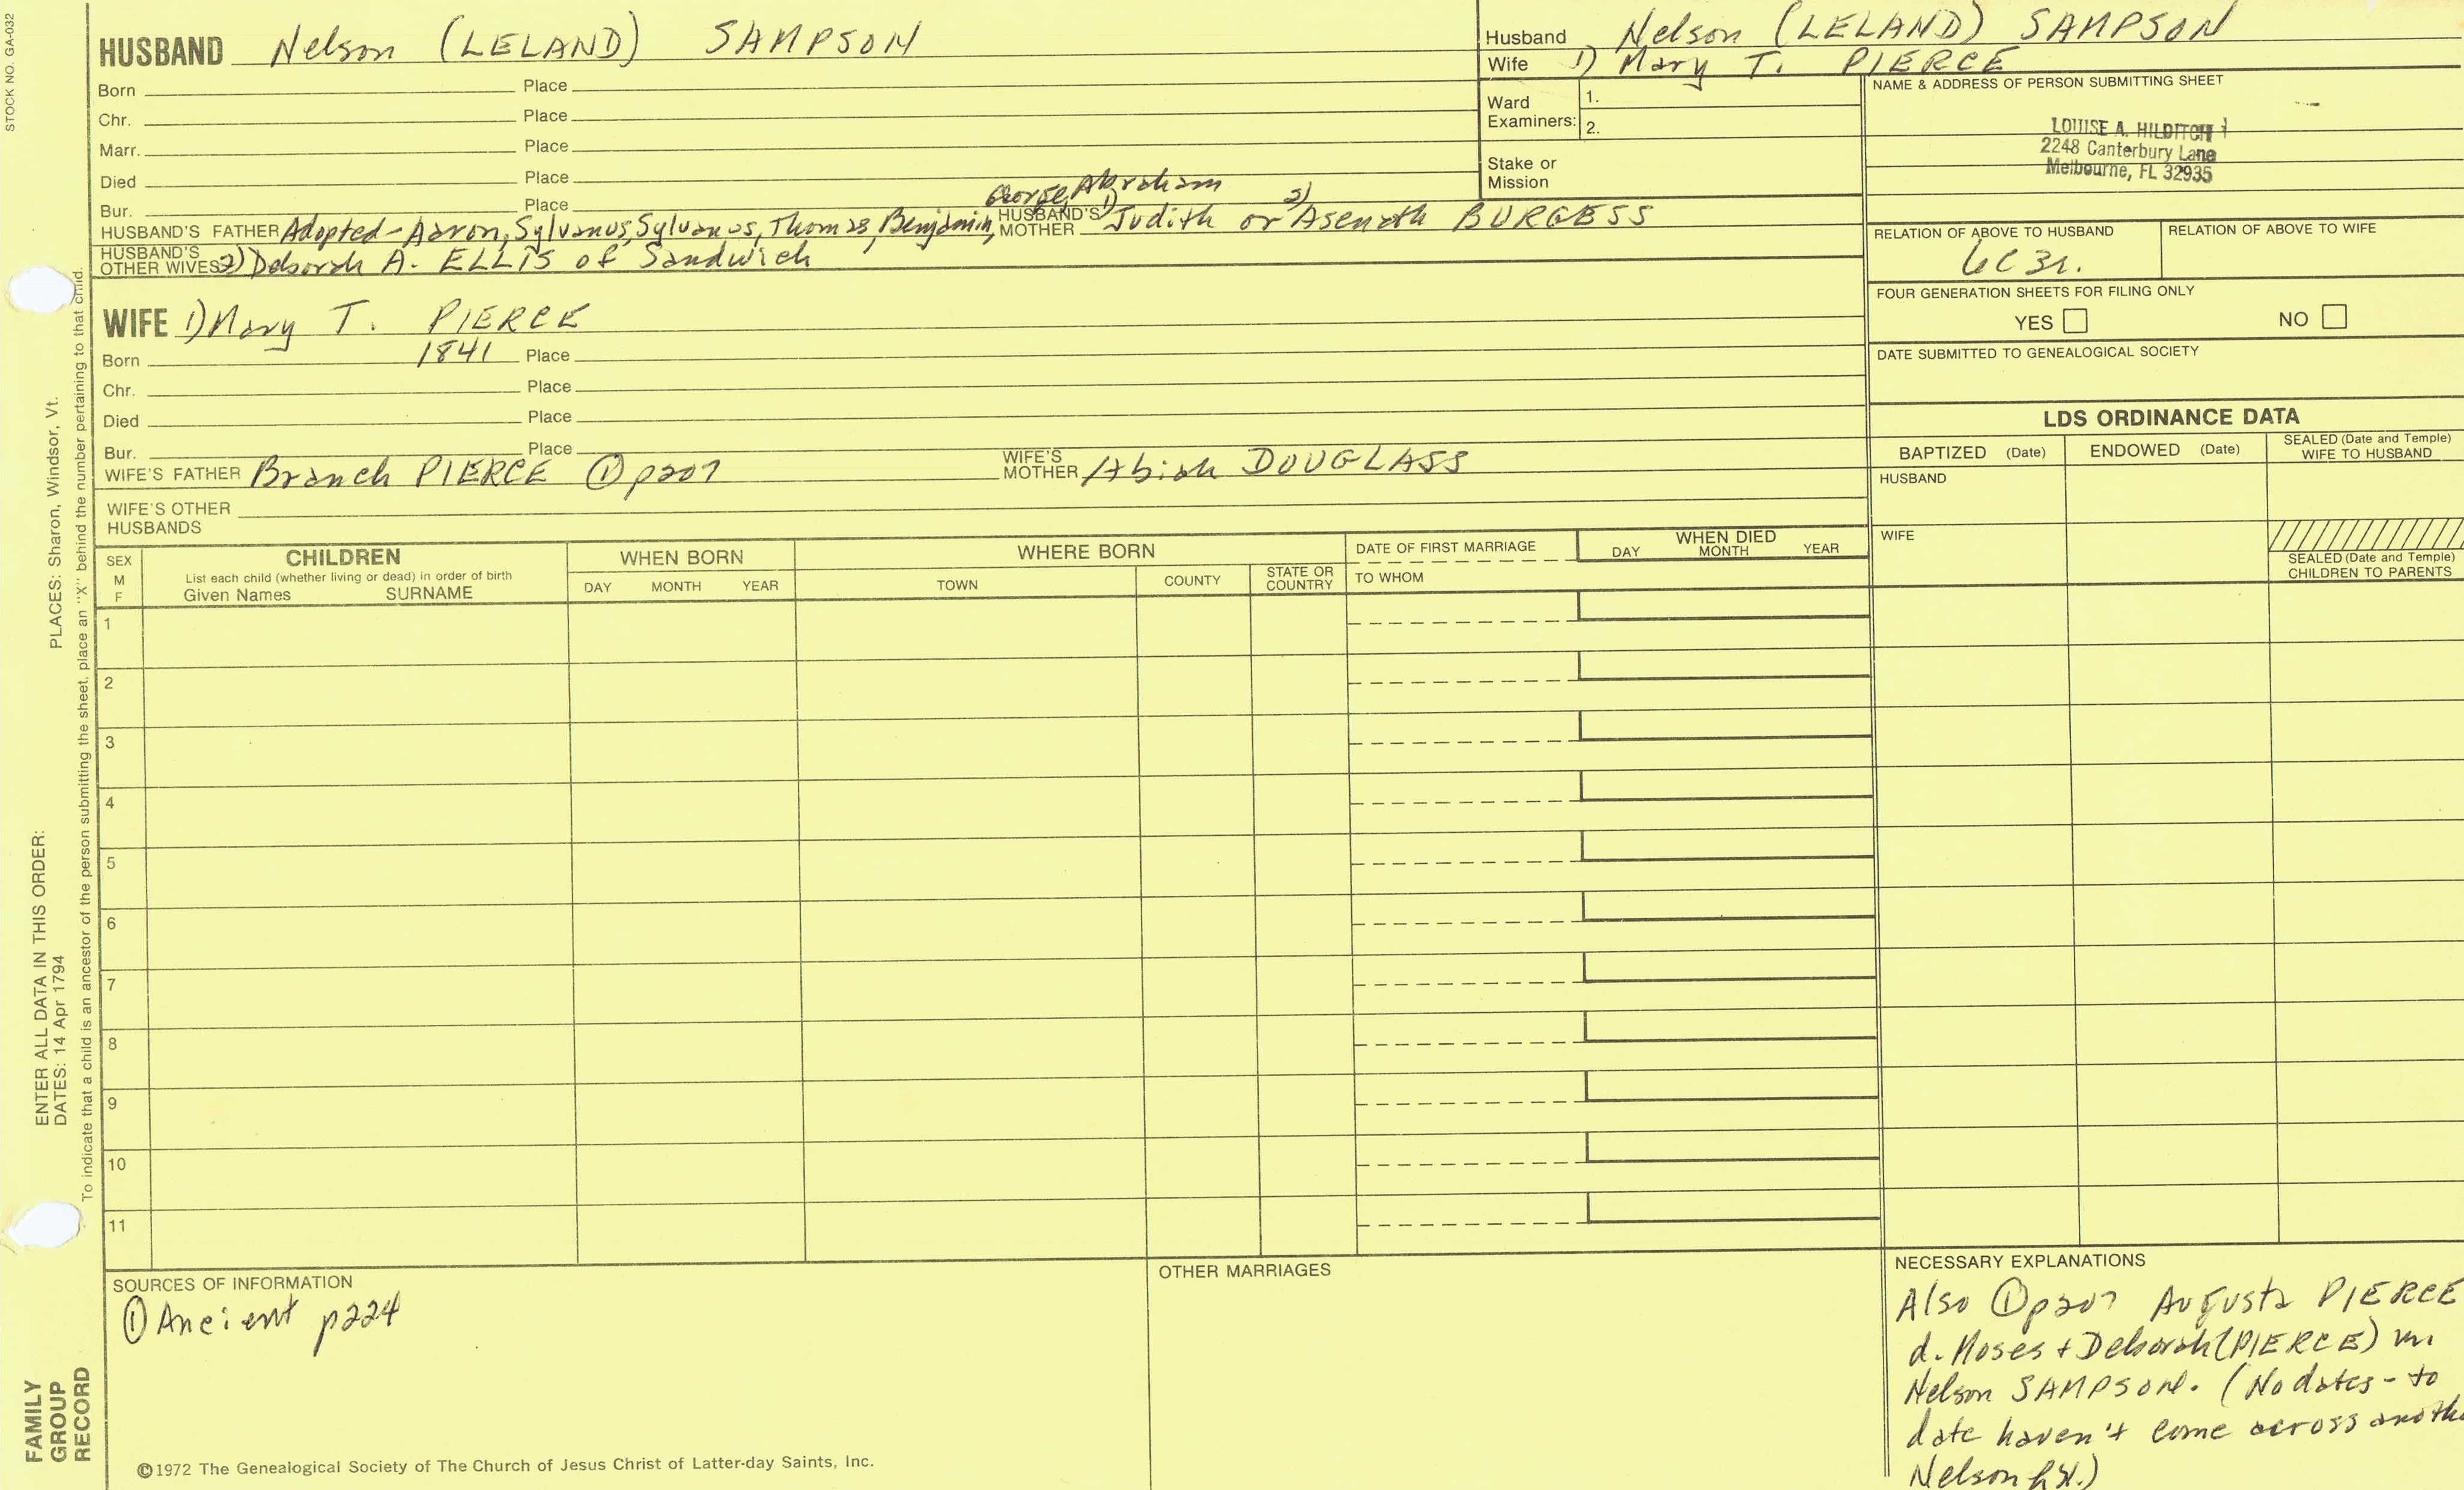 STOCK NO. GA-032
HUSBAND Nelson (LELAND) SAMPSON
Born Place
Chr. Place
Marr. Place
Died Place
Bur. Place
George, Abraham
HUSBAND'S FATHER Adopted-Aaron, Sylvanus, Sylvanus, Thomas, Benjamin,
HUSBAND'S MOTHER 1) Judith or 2) Asenath BURGESS
HUSBAND'S OTHER WIVES 2) Deborah A. ELLIS of Sandwich
WIFE 1) Mary T. PIERCE
Born 1841 Place
Chr. Place
Died Place
Bur. Place
WIFE'S FATHER Branch PIERCE ① p207
WIFE'S MOTHER Abiah DOUGLASS
WIFE'S OTHER
HUSBANDS
Husband Nelson (LELAND) SAMPSON
Wife 1) Mary T. PIERCE
Ward
Examiners:
1.
2.
Stake or
Mission
NAME & ADDRESS OF PERSON SUBMITTING SHEET
LOUISE A. HILDITCH
2248 Canterbury Lane
Melbourne, FL 32935
RELATION OF ABOVE TO HUSBAND RELATION OF ABOVE TO WIFE
6C 3r.
FOUR GENERATION SHEETS FOR FILING ONLY
YES NO
DATE SUBMITTED TO GENEALOGICAL SOCIETY
LDS ORDINANCE DATA
BAPTIZED (Date) ENDOWED (Date) SEALED (Date and Temple)
WIFE TO HUSBAND
HUSBAND
WIFE
SEALED (Date and Temple)
CHILDREN TO PARENTS
SEX
M
F
CHILDREN
List each child (whether living or dead) in order of birth
Given Names SURNAME
WHEN BORN
DAY MONTH YEAR
WHERE BORN
TOWN COUNTY STATE OR
COUNTRY
DATE OF FIRST MARRIAGE
TO WHOM
WHEN DIED
DAY MONTH YEAR
1
2
3
4
5
6
7
8
9
10
11
SOURCES OF INFORMATION
① Ancient p224
OTHER MARRIAGES
NECESSARY EXPLANATIONS
Also ① p207 Augusta PIERCE
d. Moses + Deborah (PIERCE) m.
Nelson SAMPSON. (No dates - to
date haven't come across anoth
Nelson
©1972 The Genealogical Society of The Church of Jesus Christ of Latter-day Saints, Inc.
FAMILY
GROUP
RECORD
ENTER ALL DATA IN THIS ORDER:
DATES: 14 Apr 1794
PLACES: Sharon, Windsor, Vt.
To indicate that a child is an ancestor of the person submitting the sheet, place an "X" behind the number pertaining to that child.